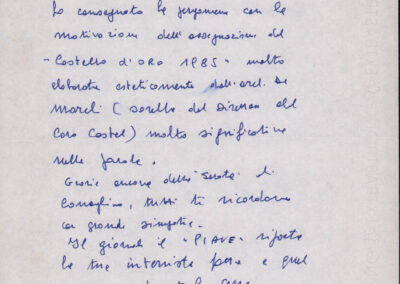 Ho consegnato la pergamena con la
motivazione dell'assegnazione del
"Castello d'ORO 1985" molto
elaborata esteticamente dall'arch. De
March (sorella del Direttore del
Coro Castel) molto significativa
nelle parole.
Grazie ancora della serata di
Conegliano, tutti ti ricordano
con grande simpatia.
Il giornale il "PIAVE" riporta
la tua intervista per e quel